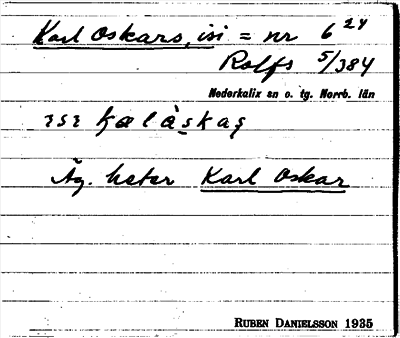 Karl Oskars, isi = nr 6 24
Rolfs 5/384
Nederkalix sn o. tg. Norrb. län
Äg. heter Karl Oskar
RUBEN DANIELSSON 1935